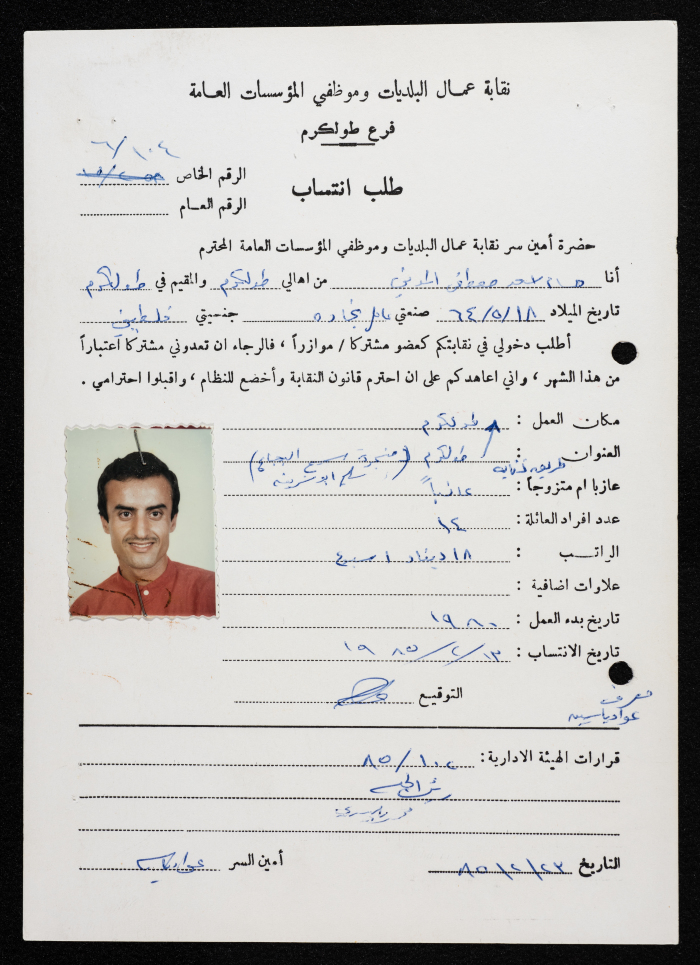 نقابة عمال البلديات وموظفي المؤسسات العامة
فرع طولكرم
٦/١٠٤
الرقم الخاص
طلب انتساب
الرقم العام
حضرة أمين سر نقابة عمال البلديات وموظفي المؤسسات العامة المحترم
أنا مصطفى من اهالي طولكرم والمقيم في طولكرم
تاريخ الميلاد ٦٤/٥/١٨ صنعتي عامل نجاره جنسيتي فلسطيني
أطلب دخولي في نقابتكم كعضو مشتركا / موازراً ، فالرجاء ان تعدوني مشتركا اعتباراً
من هذا الشهر ، واني اعاهدكم على ان احترم قانون النقابة وأخضع للنظام ، واقبلوا احترامي .
مكان العمل : طولكرم
العنوان : طولكرم (منجرة سميح
عازبا ام متزوجاً : عازباً
عدد افراد العائلة : ١٤
الراتب : ١٨ دينار اسبوع
علاوات اضافية :
تاريخ بدء العمل : ١٩٨٠
تاريخ الانتساب : ١٩٨٥/٢/١٣
التوقيع
عواد ياسين
قرارات الهيئة الادارية : ٨٥/١٠٢
التاريخ ٨٥/٢/٢٣ أمين السر عواد ياسين